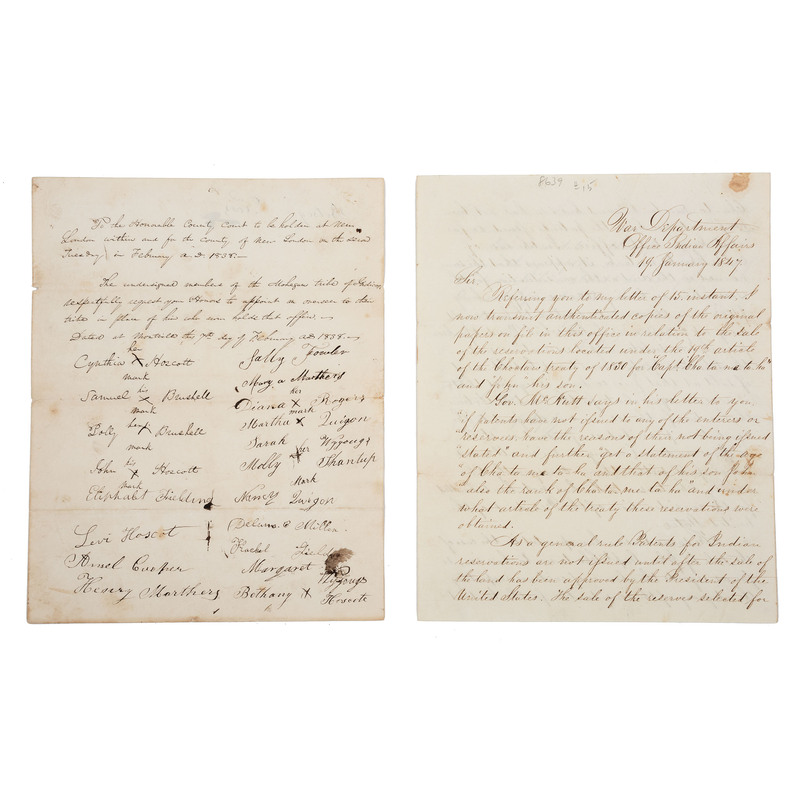 To the Honorable County Court to be holden at New
London within and for the county of New London on the second
Tuesday in February A.D. 1838.—
The undersigned members of the Mohegan tribe of Indians
respectfully request your Honors to appoint an overseer to their
tribe in place of him who now holds that office.—
Dated at Montville the 7th day of February A.D. 1838.—
Cynthia her X mark Hoscott
Samuel his X mark Brushell
Polly her X mark Brushell
John his X mark Hoscott
Eliphalet Fielding
Levi Hoscot
Amol Cooper
Henry Matthers
Sally Fowler
Mary, a Matthers
Diana her X mark Rogers
Martha X Quigon
Sarah Wyyougs
Molly her X mark Shantup
Nancy Quigon
Delana C Millen
Rachel Fielding
Margaret Wyyougs
Bethany X Hoscote
8639 315
War Department
Office Indian Affairs
19. January 1847
Sir,
Referring you to my letter of 15. instant. I
now transmit authenticated copies of the original
papers on file in this office in relation to the sale
of the reservations located under the 19th article
of the Choctaw treaty of 1830 for "Capt Cha ta me ta ha"
and John his son.
Gov. McNutt says in his letter to you,
"if patents have not issued to any of the enterers or
"reserves, have the reasons of their not being issued
"stated" and further "get a statement of the age
"of Cha ta me ta ha and that of his son John
"also the rank of Cha ta me ta ha" and under
what article of the treaty these reservations were
obtained.
As a general rule Patents for Indian
reservations are not issued until after the sale of
the land has been approved by the President of the
United States. The sale of the reserves selected for